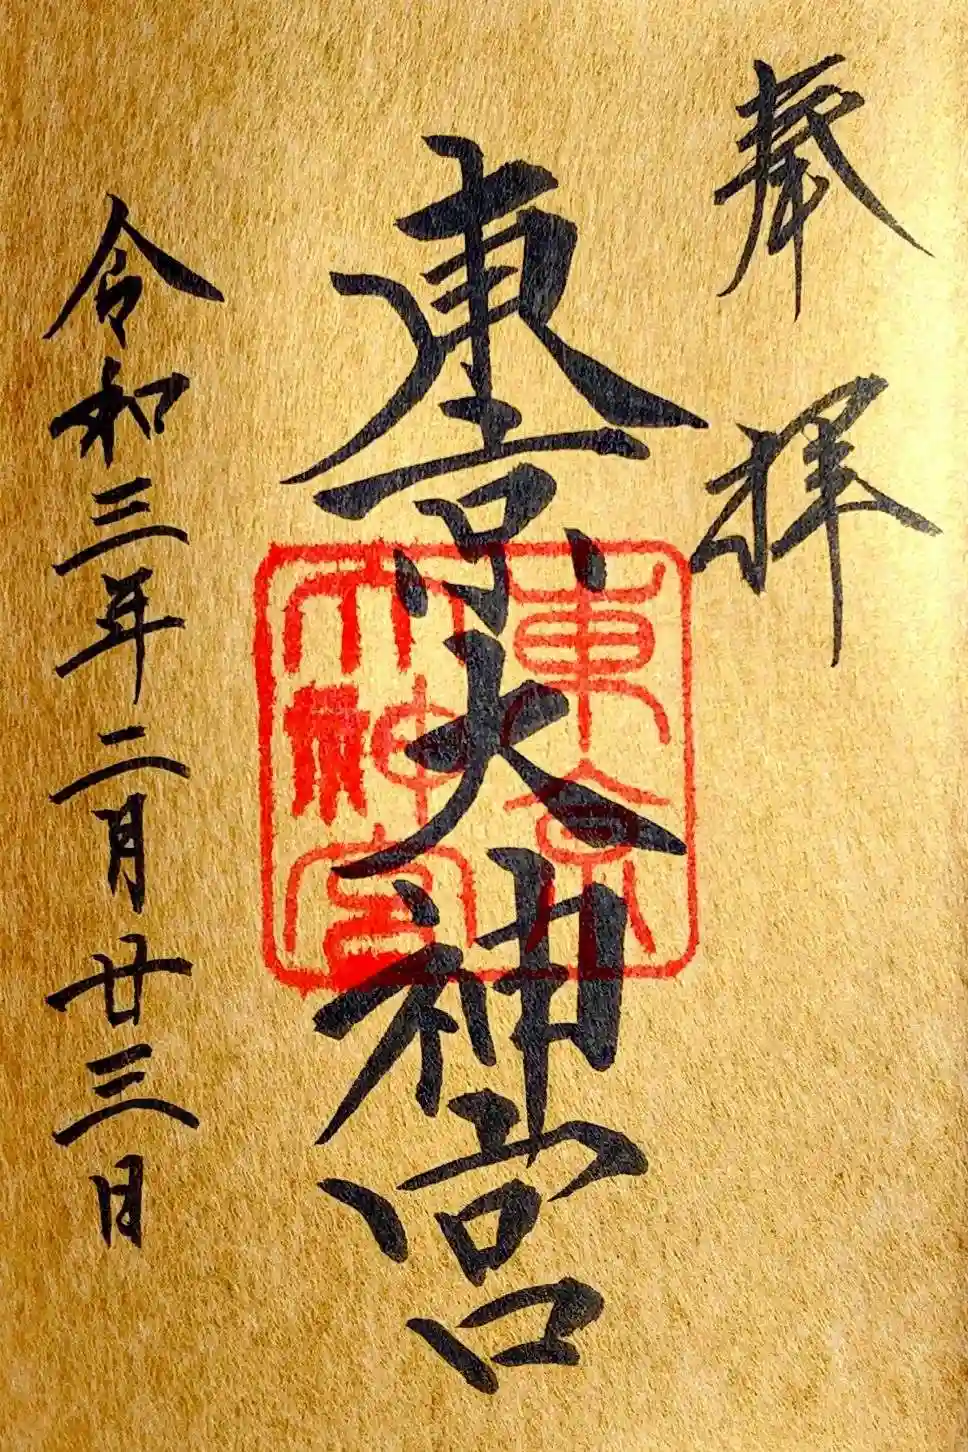 奉拝
東京大神宮
東京大神宮
令和三年二月廿三日